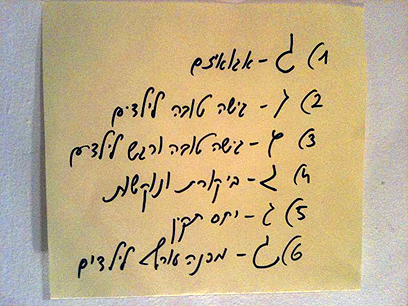 1) ג - אגואיזם
2) ג - גישה טובה לילדים
3) ג - גישה טובה ורגש לילדים
4) ג - ביקורת ונוקשות
5) ג - יחס תקין
6) ג - מכנה משותף לילדים